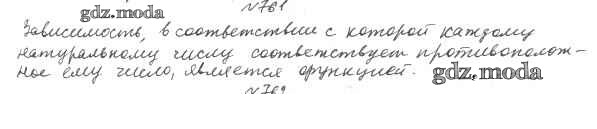 №761
gdz.moda
Зависимость, в соответствии с которой каждому
натуральному числу соответствует противополож-
ное ему число, является функцией. gdz.moda
№769